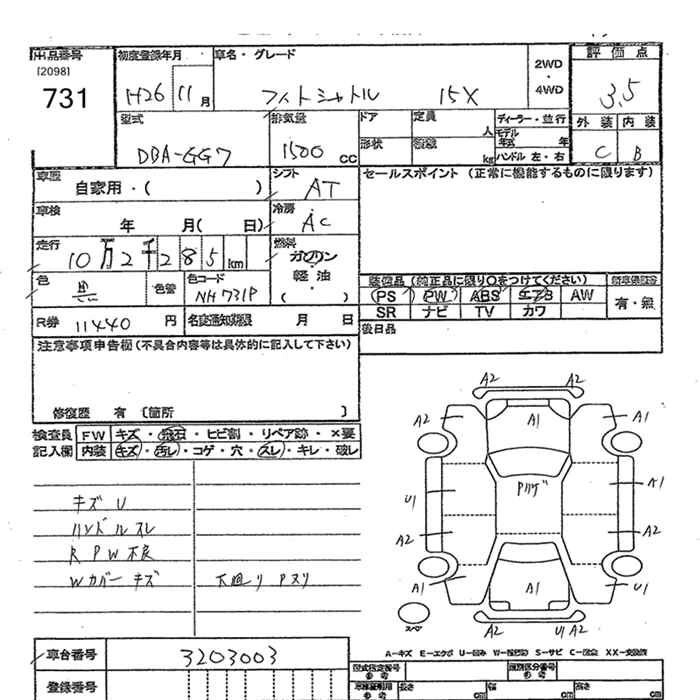 出品番号 初度登録年月 車名・グレード 2WD・4WD 評価点
(2098)
731 H26 11月 フィットシャトル 15X 3.5
型式 排気量 ドア 定員 人 ディーラー・並行 外装 内装
DBA-GG7 1500 cc 形状 kg モデル年式 年 ハンドル 左・右 C B
車歴 自家用・( ) シフト AT セールスポイント (正常に機能するものに限ります)
車検 年 月( 日) 冷房 AC
走行 10万2千285km 燃料 ガソリン 軽油 ( )
色 黒 色替 色コード NH731P
装備品 (純正品に限り○をつけてください)
PS PW ABS エアB AW 有・無
SR ナビ TV カワ
R券 11440 円 名変通知期限 月 日
後日品
注意事項申告欄 (不具合内容等は具体的に記入して下さい)
修復歴 有 〔箇所 〕
検査員 FW キズ・飛石・ヒビ割・リペア跡・×要
記入欄 内装 キズ・汚レ・コゲ・穴・スレ・キレ・破レ
キズ U
ハンドルスレ
R PW不良
Wカバーキズ 下廻り Pスリ
A2 A2
A2 A1 A1
U1 Pハゲ A1
A2 A2
A1 A1 U1
スペア A2 U1 A2
A-キズ E-エクボ U-凹み W-補修跡 S-サビ C-腐食 XX-交換済
車台番号 3203003
型式指定番号 参考 類別区分番号 参考
登録番号 車検証明用 参考 長さ cm 幅 cm 高さ cm